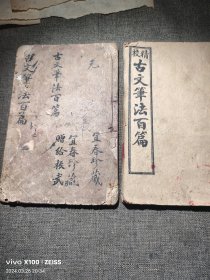 元
宜春珍藏
古文筆法百篇
宜春珍藏
贈給振武
古文筆法百篇
精校
古文筆法百篇
vivo X100 | ZEISS
2024.03.26 20:34